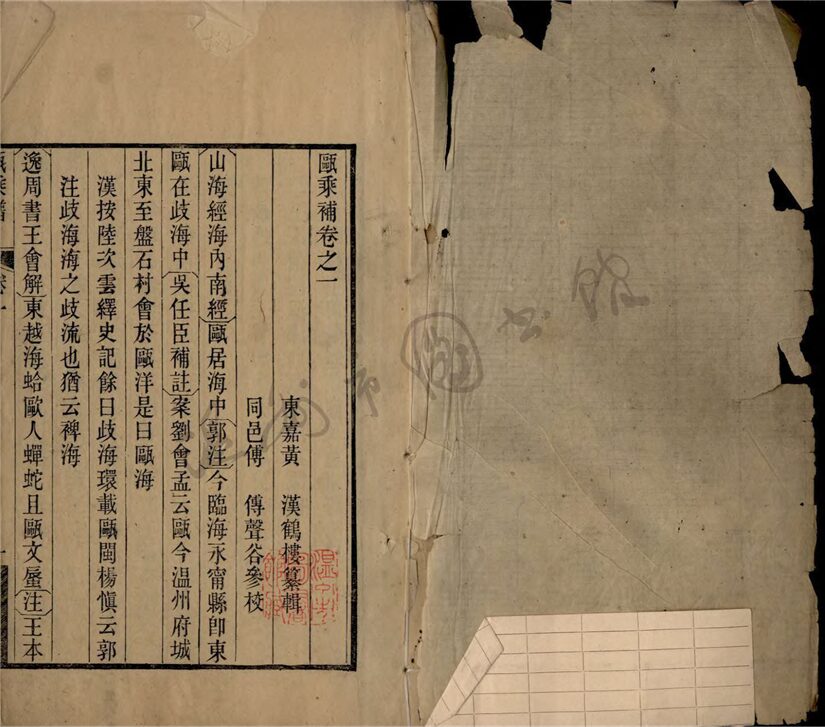 甌乘補卷之一
東嘉黃　漢鶴樓纂輯
同邑傅　傅聲谷參校
山海經海內南經甌居海中郭注今臨海永甯縣卽東
甌在歧海中吳任臣補註案劉會孟云甌今温州府城
北東至盤石村會於甌洋是曰甌海
漢按陸次雲繹史記餘曰歧海環載甌閩楊愼云郭
注歧海海之歧流也猶云裨海
逸周書王會解東越海蛤歐人蟬蛇且甌文蜃注王本
卷一
市圖書館